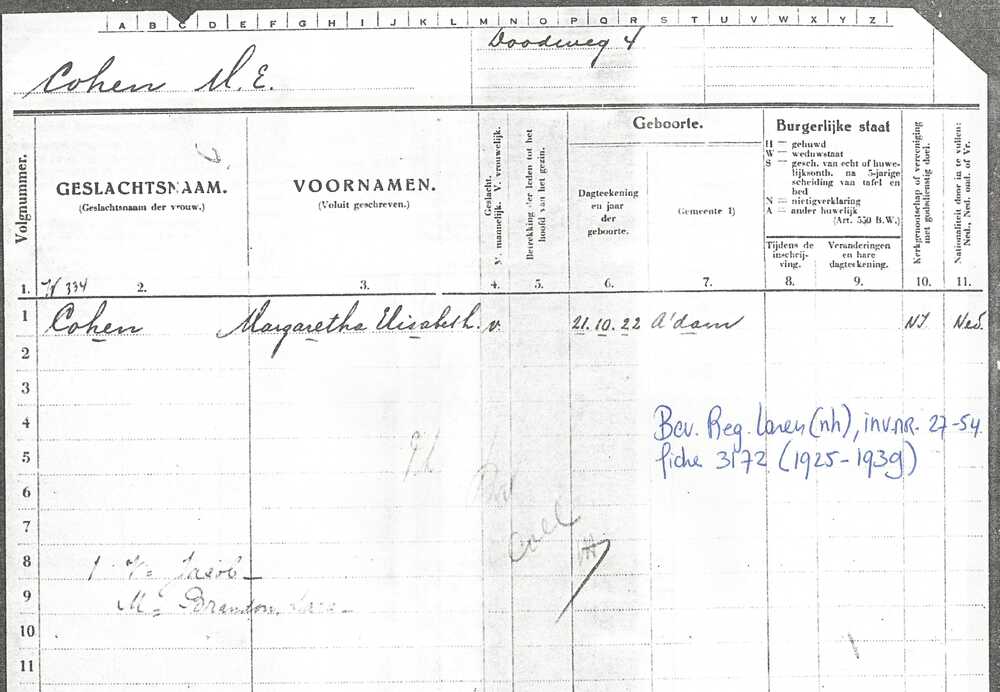 A B C D E F G H I J K L M N O P Q R S T U V W X Y Z
Doodweg 4
Cohen M.E.
Volgnummer.
GESLACHTSNAAM.
(Geslachtsnaam der vrouw.)
VOORNAMEN.
(Voluit geschreven.)
Geslacht.
M. mannelijk. V. vrouwelijk.
Betrekking der leden tot het
hoofd van het gezin.
Geboorte.
Dagteekening
en jaar
der
geboorte.
Gemeente 1)
Burgerlijke staat
H = gehuwd
W = weduwstaat
S = gesch. van echt of huwe-
lijksontb. na 5-jarige
scheiding van tafel en
bed
N = nietigverklaring
A = ander huwelijk
(Art. 550 B.W.)
Tijdens de
inschrij-
ving.
Veranderingen
en hare
dagteekening.
Kerkgenootschap of vereeniging
met godsdienstig doel.
Nationaliteit door in te vullen:
Ned., Ned. oud. of Vr.
1. 2. 3. 4. 5. 6. 7. 8. 9. 10. 11.
334
1 Cohen Margaretha Elisabeth. v. 21.10.22 A'dam NI Ned.
2
3
4
Bev. Reg. Laren (nh), inv.nr. 27-54.
5
fiche 3172 (1925-1939)
6
7
8
1 V= Jacob
9
M= Brandon
10
11